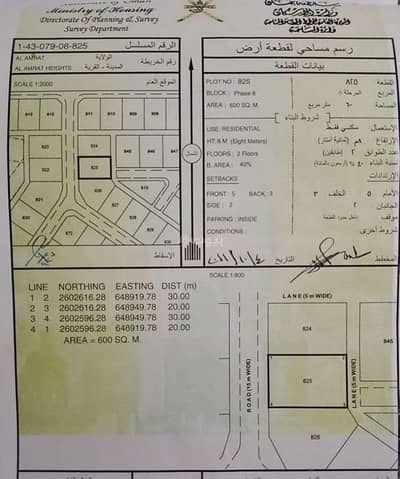 Ministry of Housing
Directorate Of Planning & Survey
Survey Department
1-43-079-08-825
الرقم المسلسل
AL AMRAT
الولاية
رقم الخريطة
AL AMRAT HEIGHTS
المدينة - القرية
SCALE 1:2000
الموقع العام
الشمال
824
825
الإسقاط
رسم مساحي لقطعة أرض
بيانات القطعة
PLOT NO : 825
القطعة ٨٢٥
BLOCK : Phase 8
المرحلة ٨
AREA : 600 SQ. M.
المساحة ٦٠٠ متر مربع
شروط البناء
USE: RESIDENTIAL
الإستعمال سكني فقط
HT: 8 M (Eight Meters)
الإرتفاع ٨م (ثمانية أمتار)
FLOORS : 2 Floors
عدد الطوابق ٢ (طابقين)
B. AREA : 40%
نسبة البناء ٤٠% (أربعون بالمائة)
SETBACKS
الإرتدادات
FRONT : 5 BACK : 3
الأمام ٥ الخلف ٣
SIDE : 2
الجانبان ٢
PARKING : INSIDE
موقف داخل حدود القطعة
CONDITIONS :
شروط أخرى
المخطط
التاريخ
LINE NORTHING EASTING DIST (m)
1 2 2602616.28 648919.78 30.00
2 3 2602616.28 648949.78 20.00
3 4 2602596.28 648949.78 30.00
4 1 2602596.28 648919.78 20.00
AREA = 600 SQ. M.
SCALE 1:800
LANE (5 m WIDE)
824
845
ROAD (15 m WIDE)
825
LANE (5 m WIDE)
826